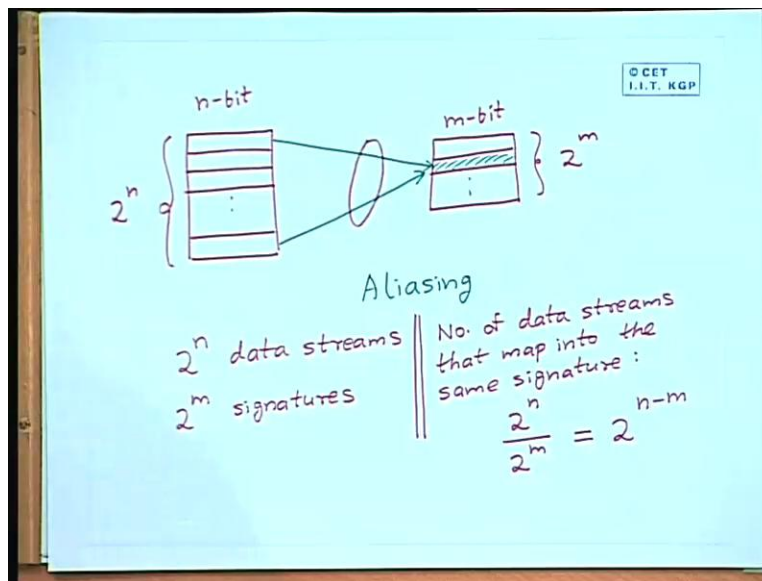 © CET
I.I.T. KGP
n-bit
m-bit
2^n
2^m
:
:
Aliasing
2^n data streams
2^m signatures
No. of data streams
that map into the
same signature :
2^n / 2^m = 2^(n-m)